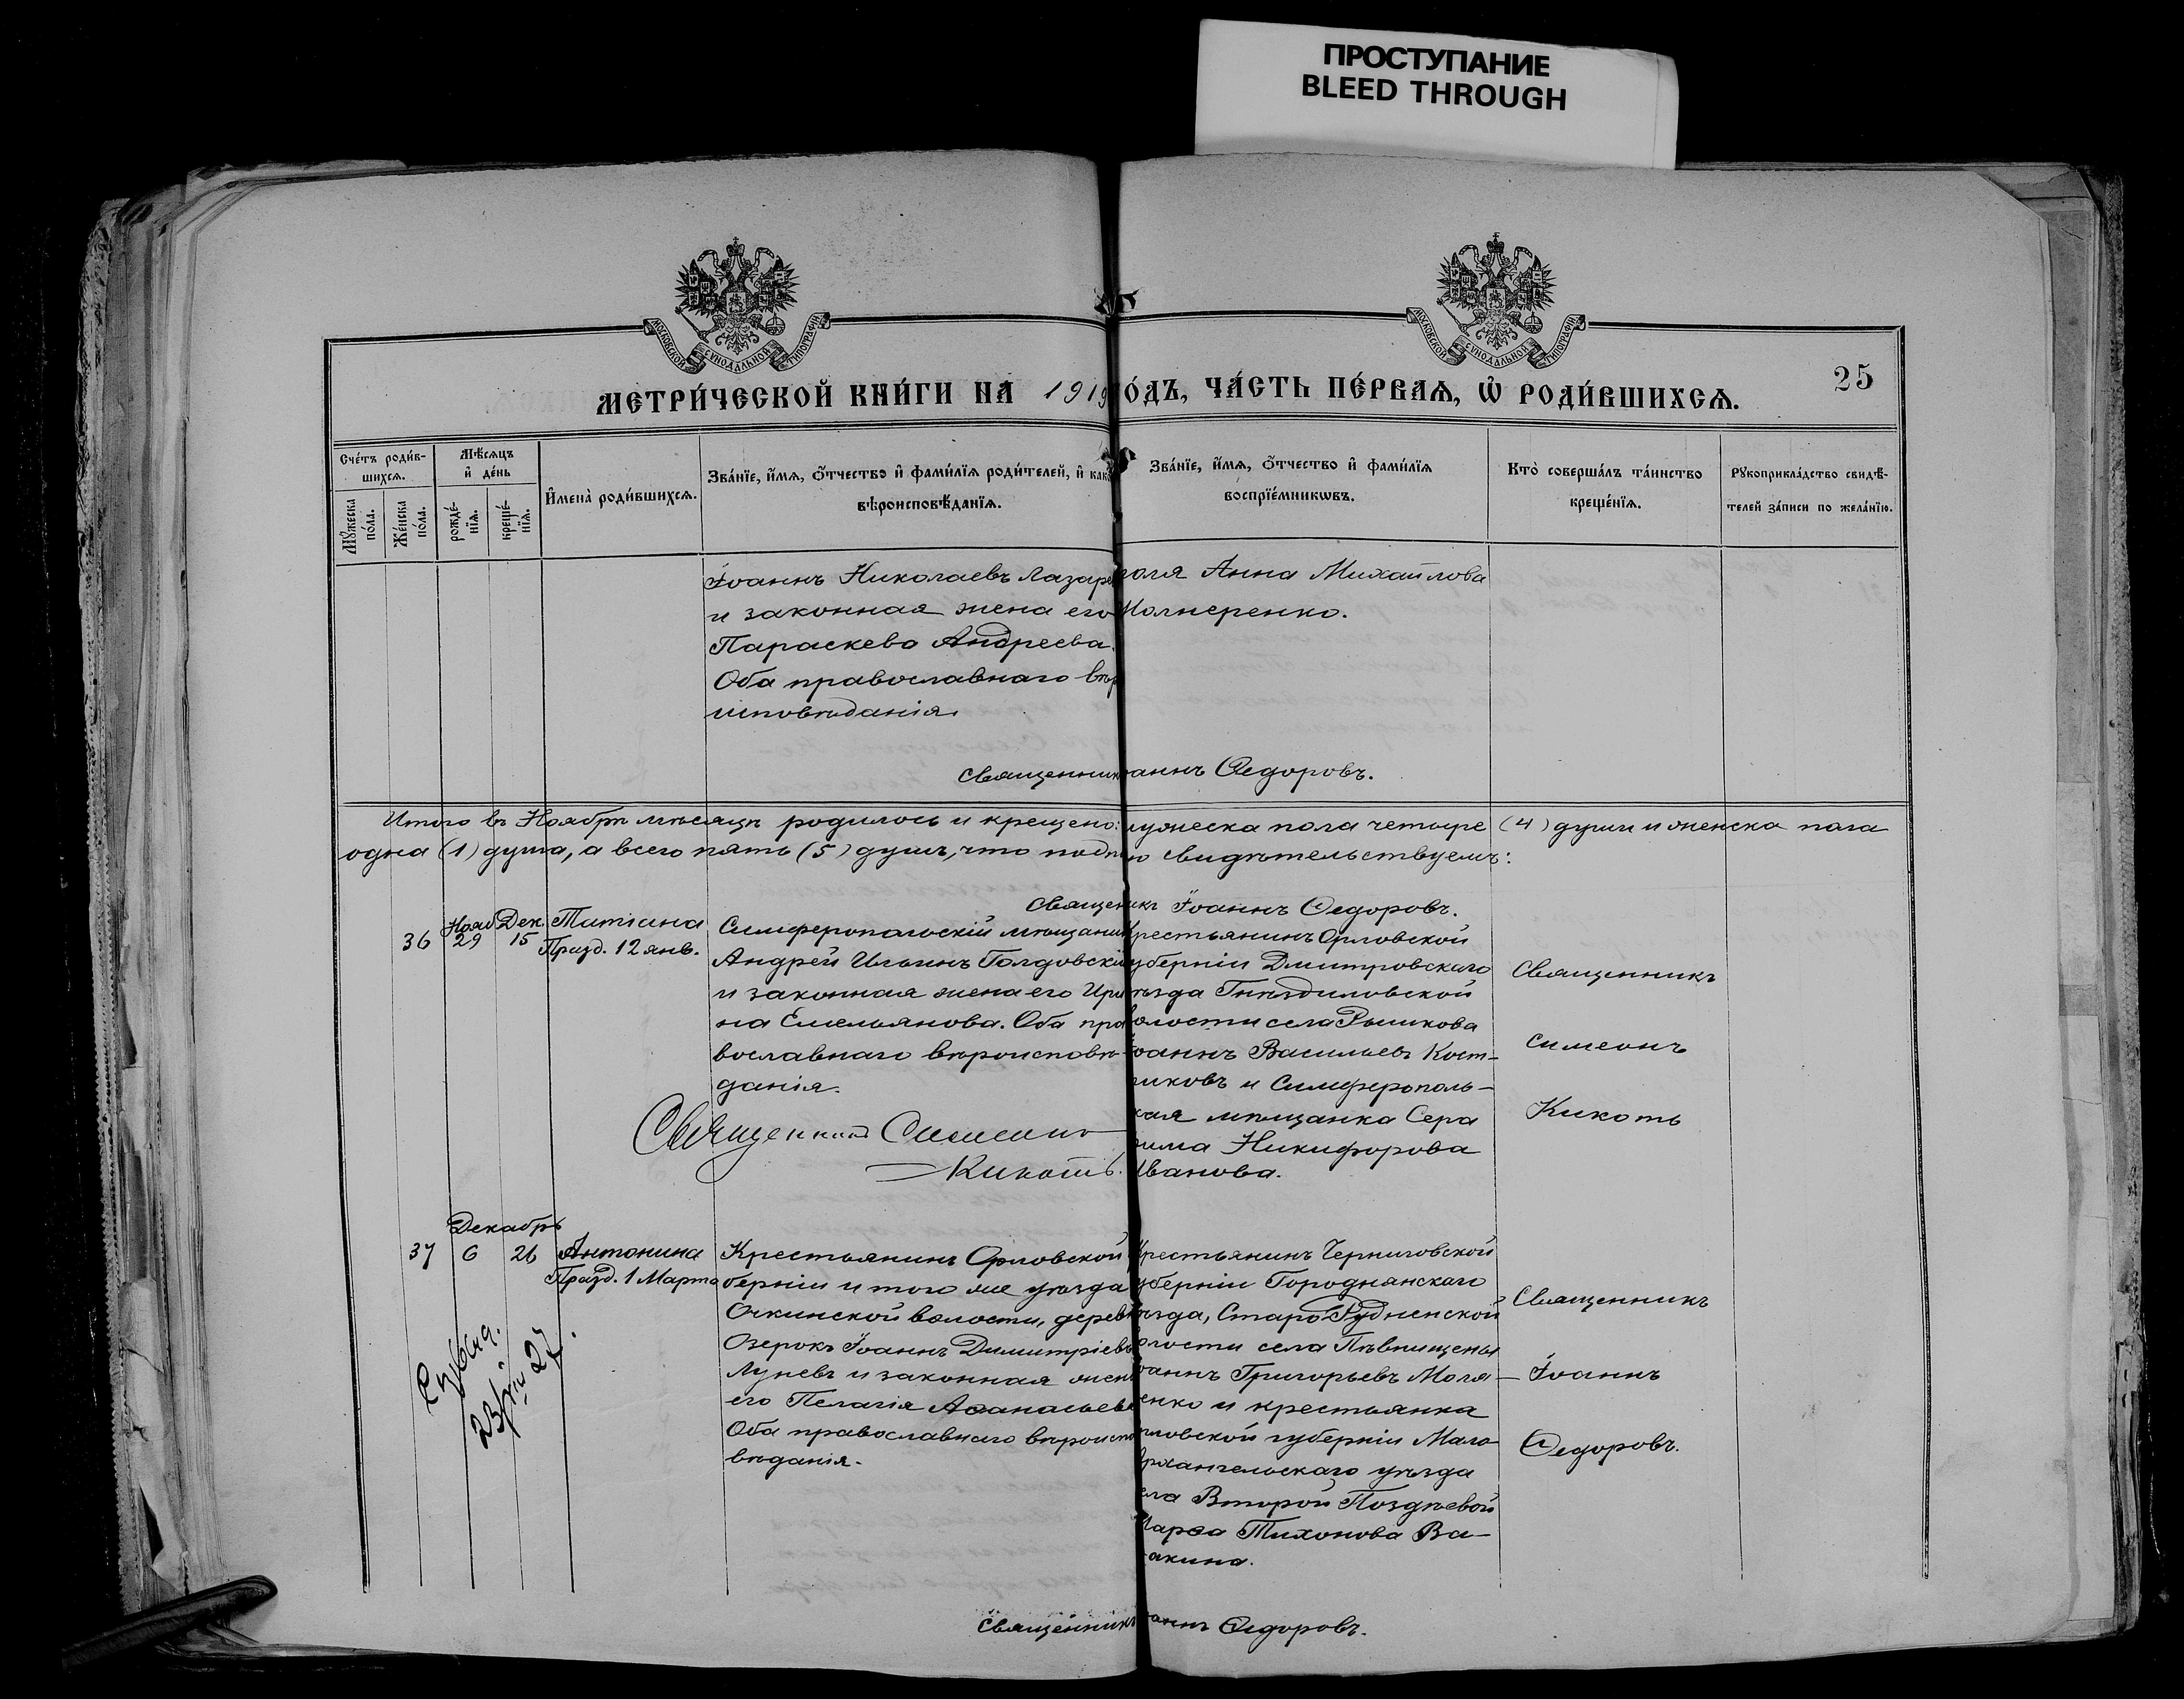 ПРОСТУПАНИЕ
BLEED THROUGH
МОСКОВСКОЙ СУНОДАЛЬНОЙ ТИПОГРАФІИ
МОСКОВСКОЙ СУНОДАЛЬНОЙ ТИПОГРАФІИ
25
МЕТРИ́ЧЕСКОЙ КНИ́ГИ НА 1919 ГО́ДЪ, ЧА́СТЬ ПЕ́РВАЯ, Ѡ РОДИ́ВШИХСЯ.
Сче́тъ роди́в-
шихся.
Мꙋжеска по́ла.
Же́нска по́ла.
Мѣ́сяцъ
и де́нь
рожде́-
нїя.
креще́-
нїя.
Имена̀ роди́вшихся.
Зва́нїе, и́мя, о́тчество и фами́лїя роди́телей, и како́
вѣроисповѣ́данїя.
Зва́нїе, и́мя, о́тчество и фами́лїя
воспрїе́мникѡвъ.
Кто̀ соверша́лъ та́инство
креще́нїя.
Рꙋкоприкла́дство свидѣ́-
телей за́писи по жела́нїю.
Іоаннъ Николаевъ Лазаре
и законная жена его
Параскева Андреева.
Оба православнаго вѣр
исповѣданія.
поля Анна Михайлова
Священник аннъ Ѳедоровъ.
Итого въ Ноябрѣ мѣсяцѣ родилось и крещено: мужеска пола четыре (4) души и женска пола
одна (1) душа, а всего пять (5) душъ, что подп ю свидѣтельствуемъ:
Священикъ Іоаннъ Ѳедоровъ.
36
Нояб
29
Дек.
15
Татіана
Празд. 12 янв.
Симферопольскій мѣщанин
Андрей Ильинъ Голдовскі
и законная жена его Ири
на Емельянова. Оба пра
вославнаго вѣроисповѣ-
данія.
Крестьянинъ Орловской
губерніи Дмитровскаго
ѣзда Гнѣздиловской
волости села Рышкова
Іоаннъ Васильевъ Кост-
риковъ и Симферополь-
кая мѣщанка Сера
има Никифорова
Иванова.
Священникъ
Симеонъ
Кикоть
Священникъ Симеонъ
Кикоть.
37
Декабрь
6
26
Антонина
Празд. 1 Марта
Крестьянинъ Орловской
берніи и того же уѣзда
Очкинской волости, дерев
Озерокъ Іоаннъ Димитріевъ
Луневъ и законная жен
его Пелагія Аѳанасьева
Оба православнаго вѣроиспо
вѣданія.
Крестьянинъ Черниговской
губерніи Городнянскаго
ѣзда, Старо Рудненской
олости села Пѣвнищены
Іоаннъ Григорьевъ Моля-
енко и крестьянка
рловской губерніи Мало
рхангельскаго уѣзда
ела Второй Поздѣевой
Марѳа Тихонова Ва-
акина.
Священникъ
Іоаннъ
Ѳедоровъ.
27
Священникъ аннъ Ѳедоровъ.